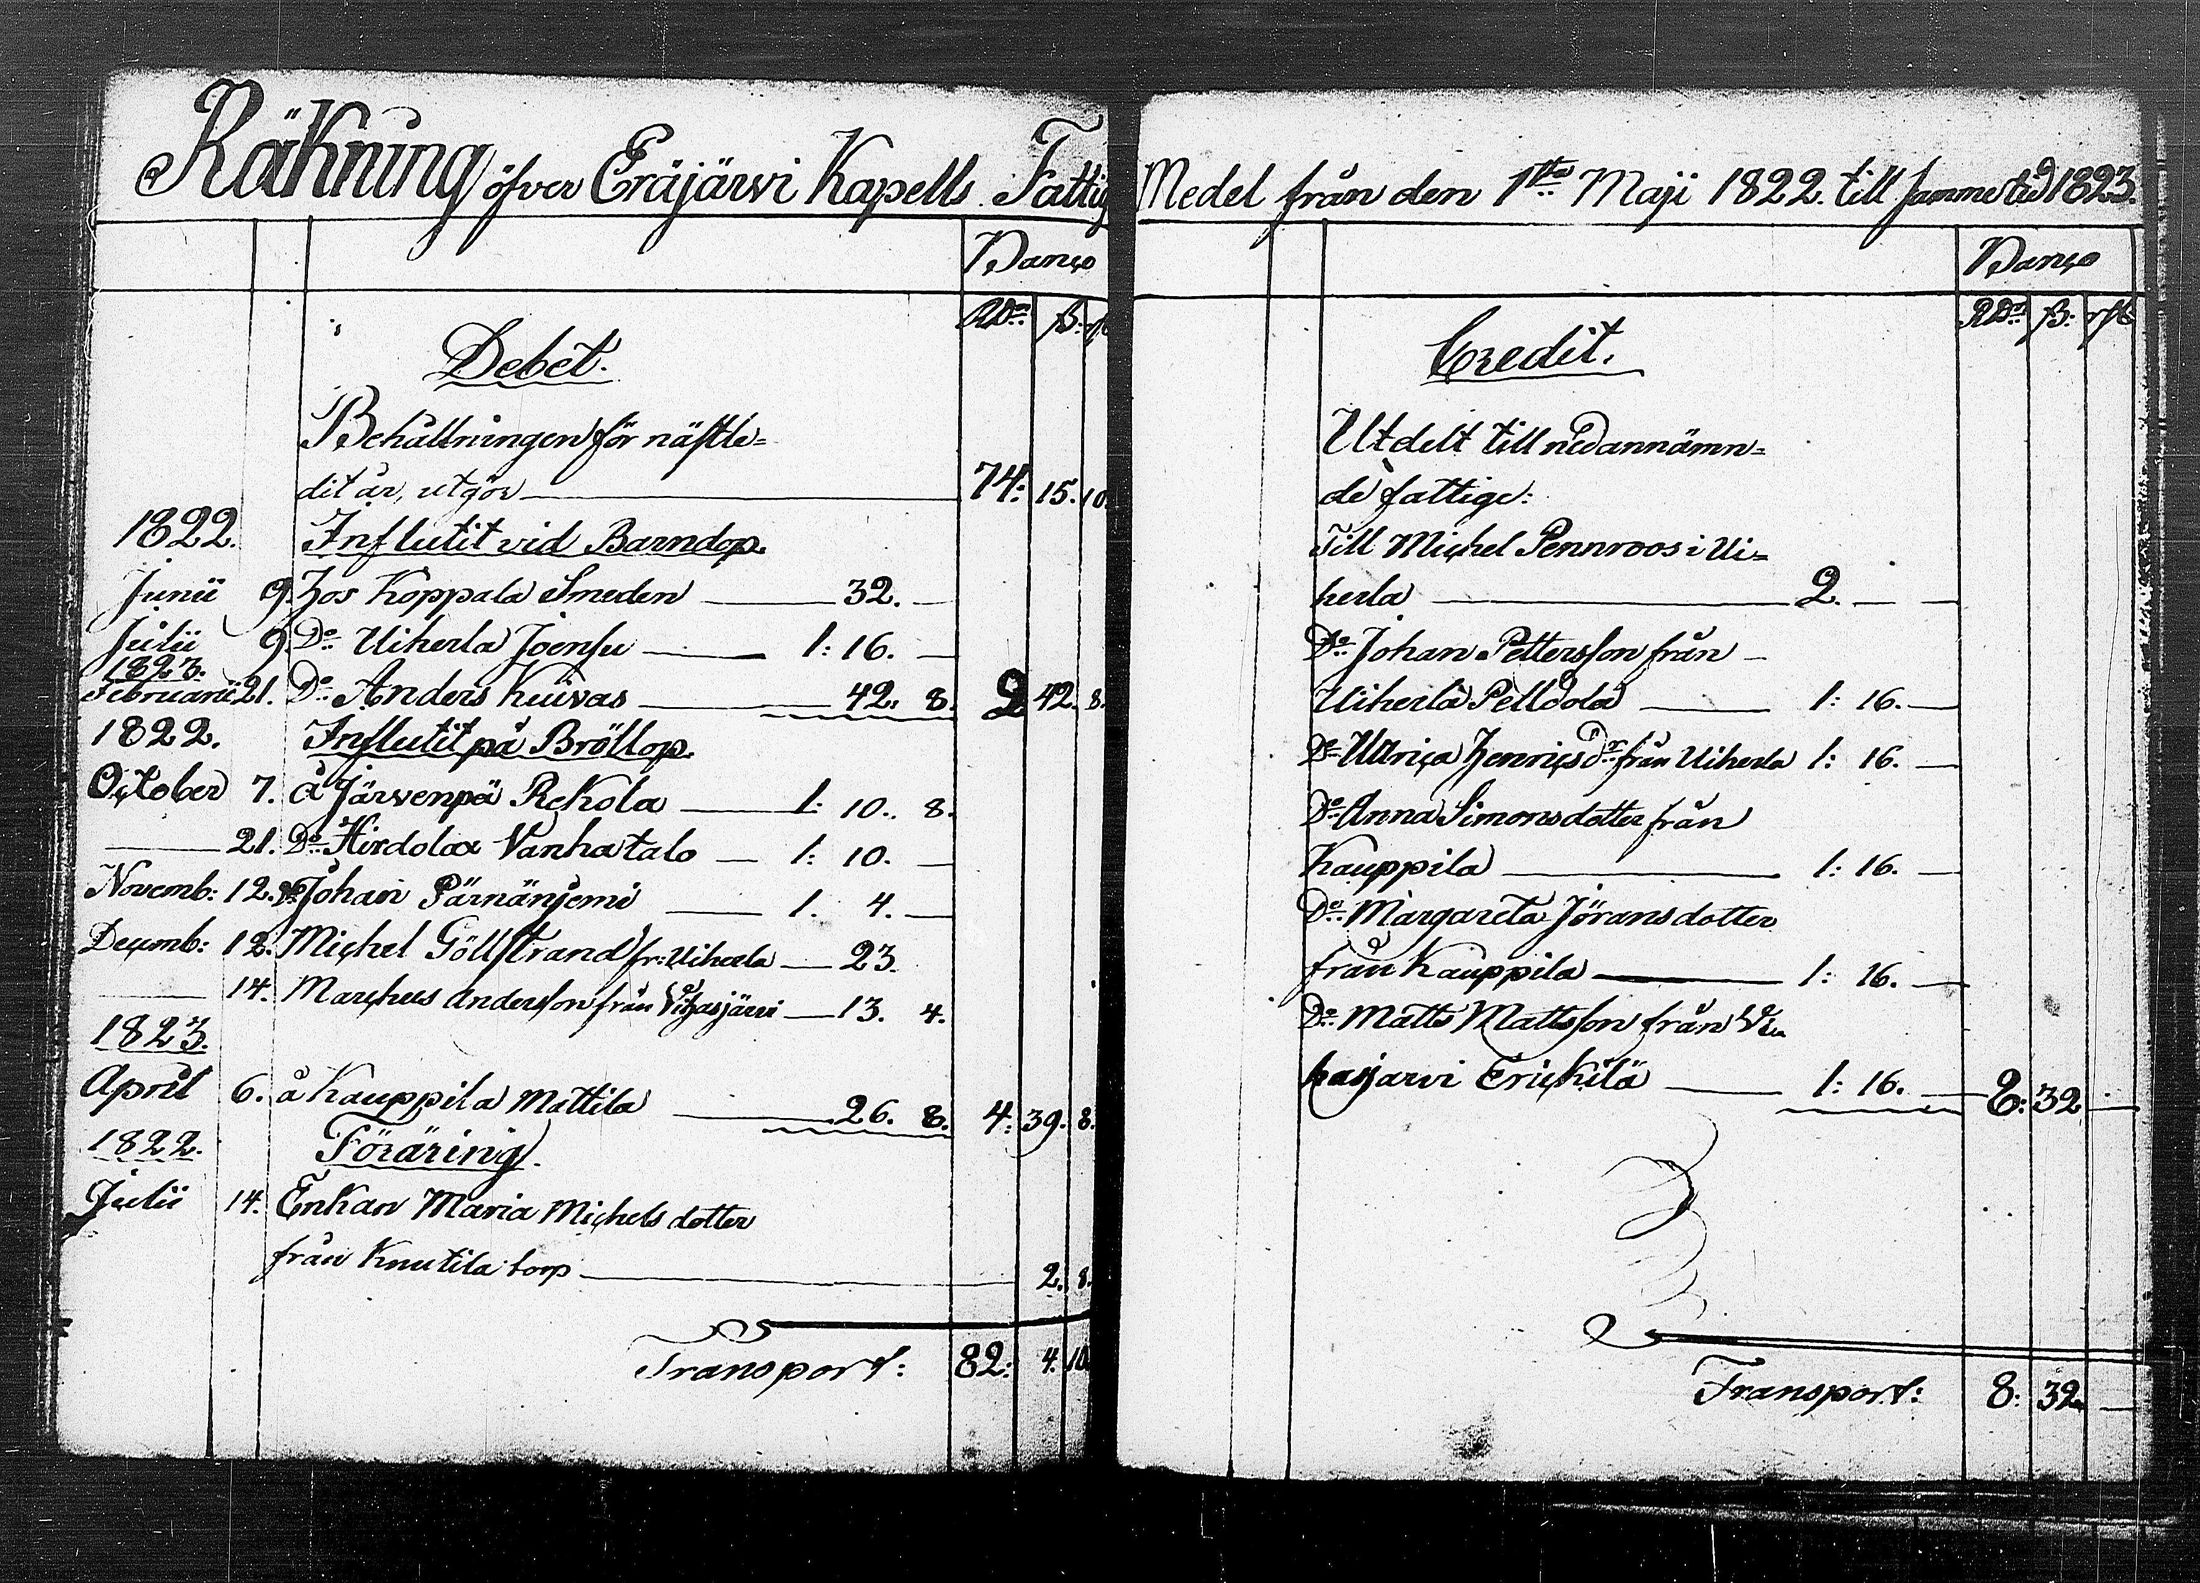 Räkning öfver Eräjärvi Kapells Fattig Medel från den 1sta Maji 1822. till samme tid 1823.
Banco
RDr ß: rst
Debet.
Behållningen för nästle=
dit år, utgör 74: 15. 10.
1822. Influtit vid Barndop.
Junii 9. Hos Koppala Smeden 32. —
Julii 9. Do Uiherla Joensu 1: 16. —
1823.
Februarii 21. Do Anders Kuivas 42. 8. 2 42. 8.
1822. Influtit på Bröllop.
October 7. å Järvenpä Rekola 1: 10. 8.
— 21. Do Hirdola Vanhatalo 1: 10. —
Novemb: 12. Do Johan Pärnänjemi 1. 4. —
Decemb: 12. Michel Göllstrand fr: Uiherla 23.
— 14. Marcus Andersson från Vihasjärvi 13. 4.
1823.
April 6. å Kauppila Mattila 26. 8. 4: 39. 8.
1822. Föräring.
Julii 14. Enkan Maria Michelsdotter
från Knutila torp 2. 8.
Transport: 82: 4. 10.
Banco
RDr ß: rst
Credit.
Utdelt till nedannämn=
de fattige:
Till Michel Pennroos i Ui=
herla 2. — —
Do Johan Pettersson från
Uiherla Pelldola 1: 16. —
Do Ullrica Henricsdr från Uiherla 1: 16. —
Do Anna Simonsdotter från
Kauppila 1: 16. —
Do Margareta Jöransdotter
från Kauppila 1: 16. —
Do Matts Mattsson från Vi=
hasjarvi Erickilä 1: 16. — 8: 32 —
Transport: 8: 32. —